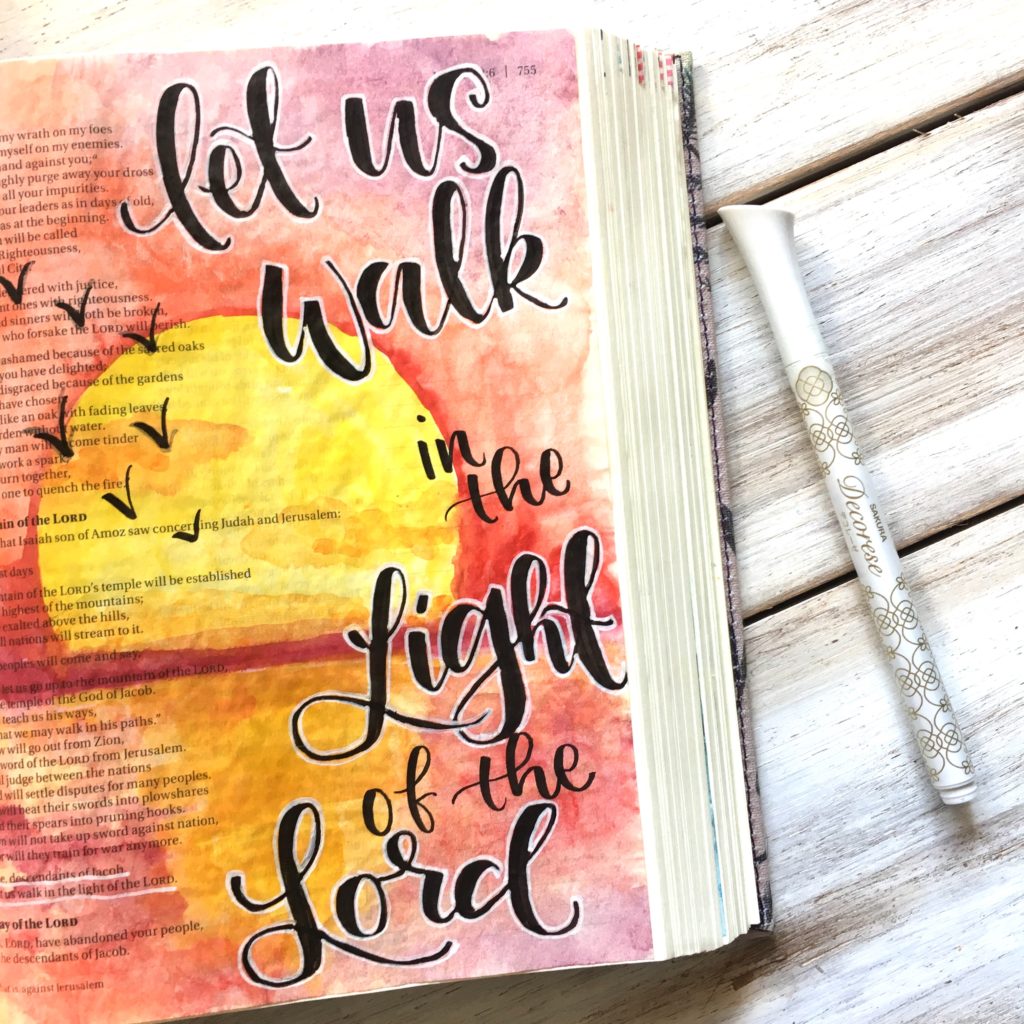 let us
walk
in
the
Light
of the
Lord
:6 | 755
my wrath on my foes
myself on my enemies.
hand against you;
purge away your dross
all your impurities.
our leaders as in days of old,
as at the beginning.
will be called
Righteousness,
City
with justice,
ones with righteousness.
sinners will both be broken,
who forsake the LORD will perish.
ashamed because of the sacred oaks
you have delighted;
disgraced because of the gardens
have chosen
like an oak with fading leaves,
without water.
man will become tinder
work a spark;
burn together,
one to quench the fire.
of the LORD
that Isaiah son of Amoz saw concerning Judah and Jerusalem:
last days
mountain of the LORD's temple will be established
highest of the mountains;
exalted above the hills,
all nations will stream to it.
peoples will come and say,
let us go up to the mountain of the LORD,
temple of the God of Jacob.
teach us his ways,
that we may walk in his paths."
will go out from Zion,
word of the LORD from Jerusalem.
judge between the nations
will settle disputes for many peoples.
will beat their swords into plowshares
their spears into pruning hooks.
will not take up sword against nation,
will they train for war anymore.
descendants of Jacob
us walk in the light of the LORD.
Day of the LORD
LORD, have abandoned your people,
the descendants of Jacob.
against Jerusalem
SAKURA
Decorese